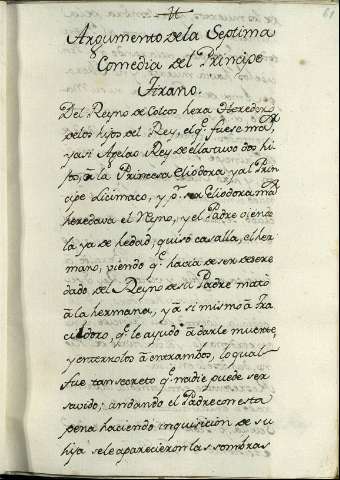 61
Argumento dela Septima
Comedia del Principe
Tirano.
Del Reyno de Colcos hera Heredero
delos hijos del Rey, el q.e fuese mayor,
y asi Agelao Rey de ella tuvo dos hi-
jos, a la Princesa Eliodora y al Prin-
cipe Licimaco, y p.r ser Eliodora mayor
heredava el Reyno, y el Padre viendo-
la ya de hedad, quiso casalla, el her-
mano, viendo q.e havia de ser deshere-
dado del Reyno de su Padre mató
á la hermana, y á si mismo á Tra-
cildoro, q.e le ayudo á darle muerte,
y enterrolos á entrambos, lo qual
fue tan secreto q.e nadie puede ser
savido; andando el Padre con esta
pena haciendo inquisicion de su
hija se le aparecieron las sombras